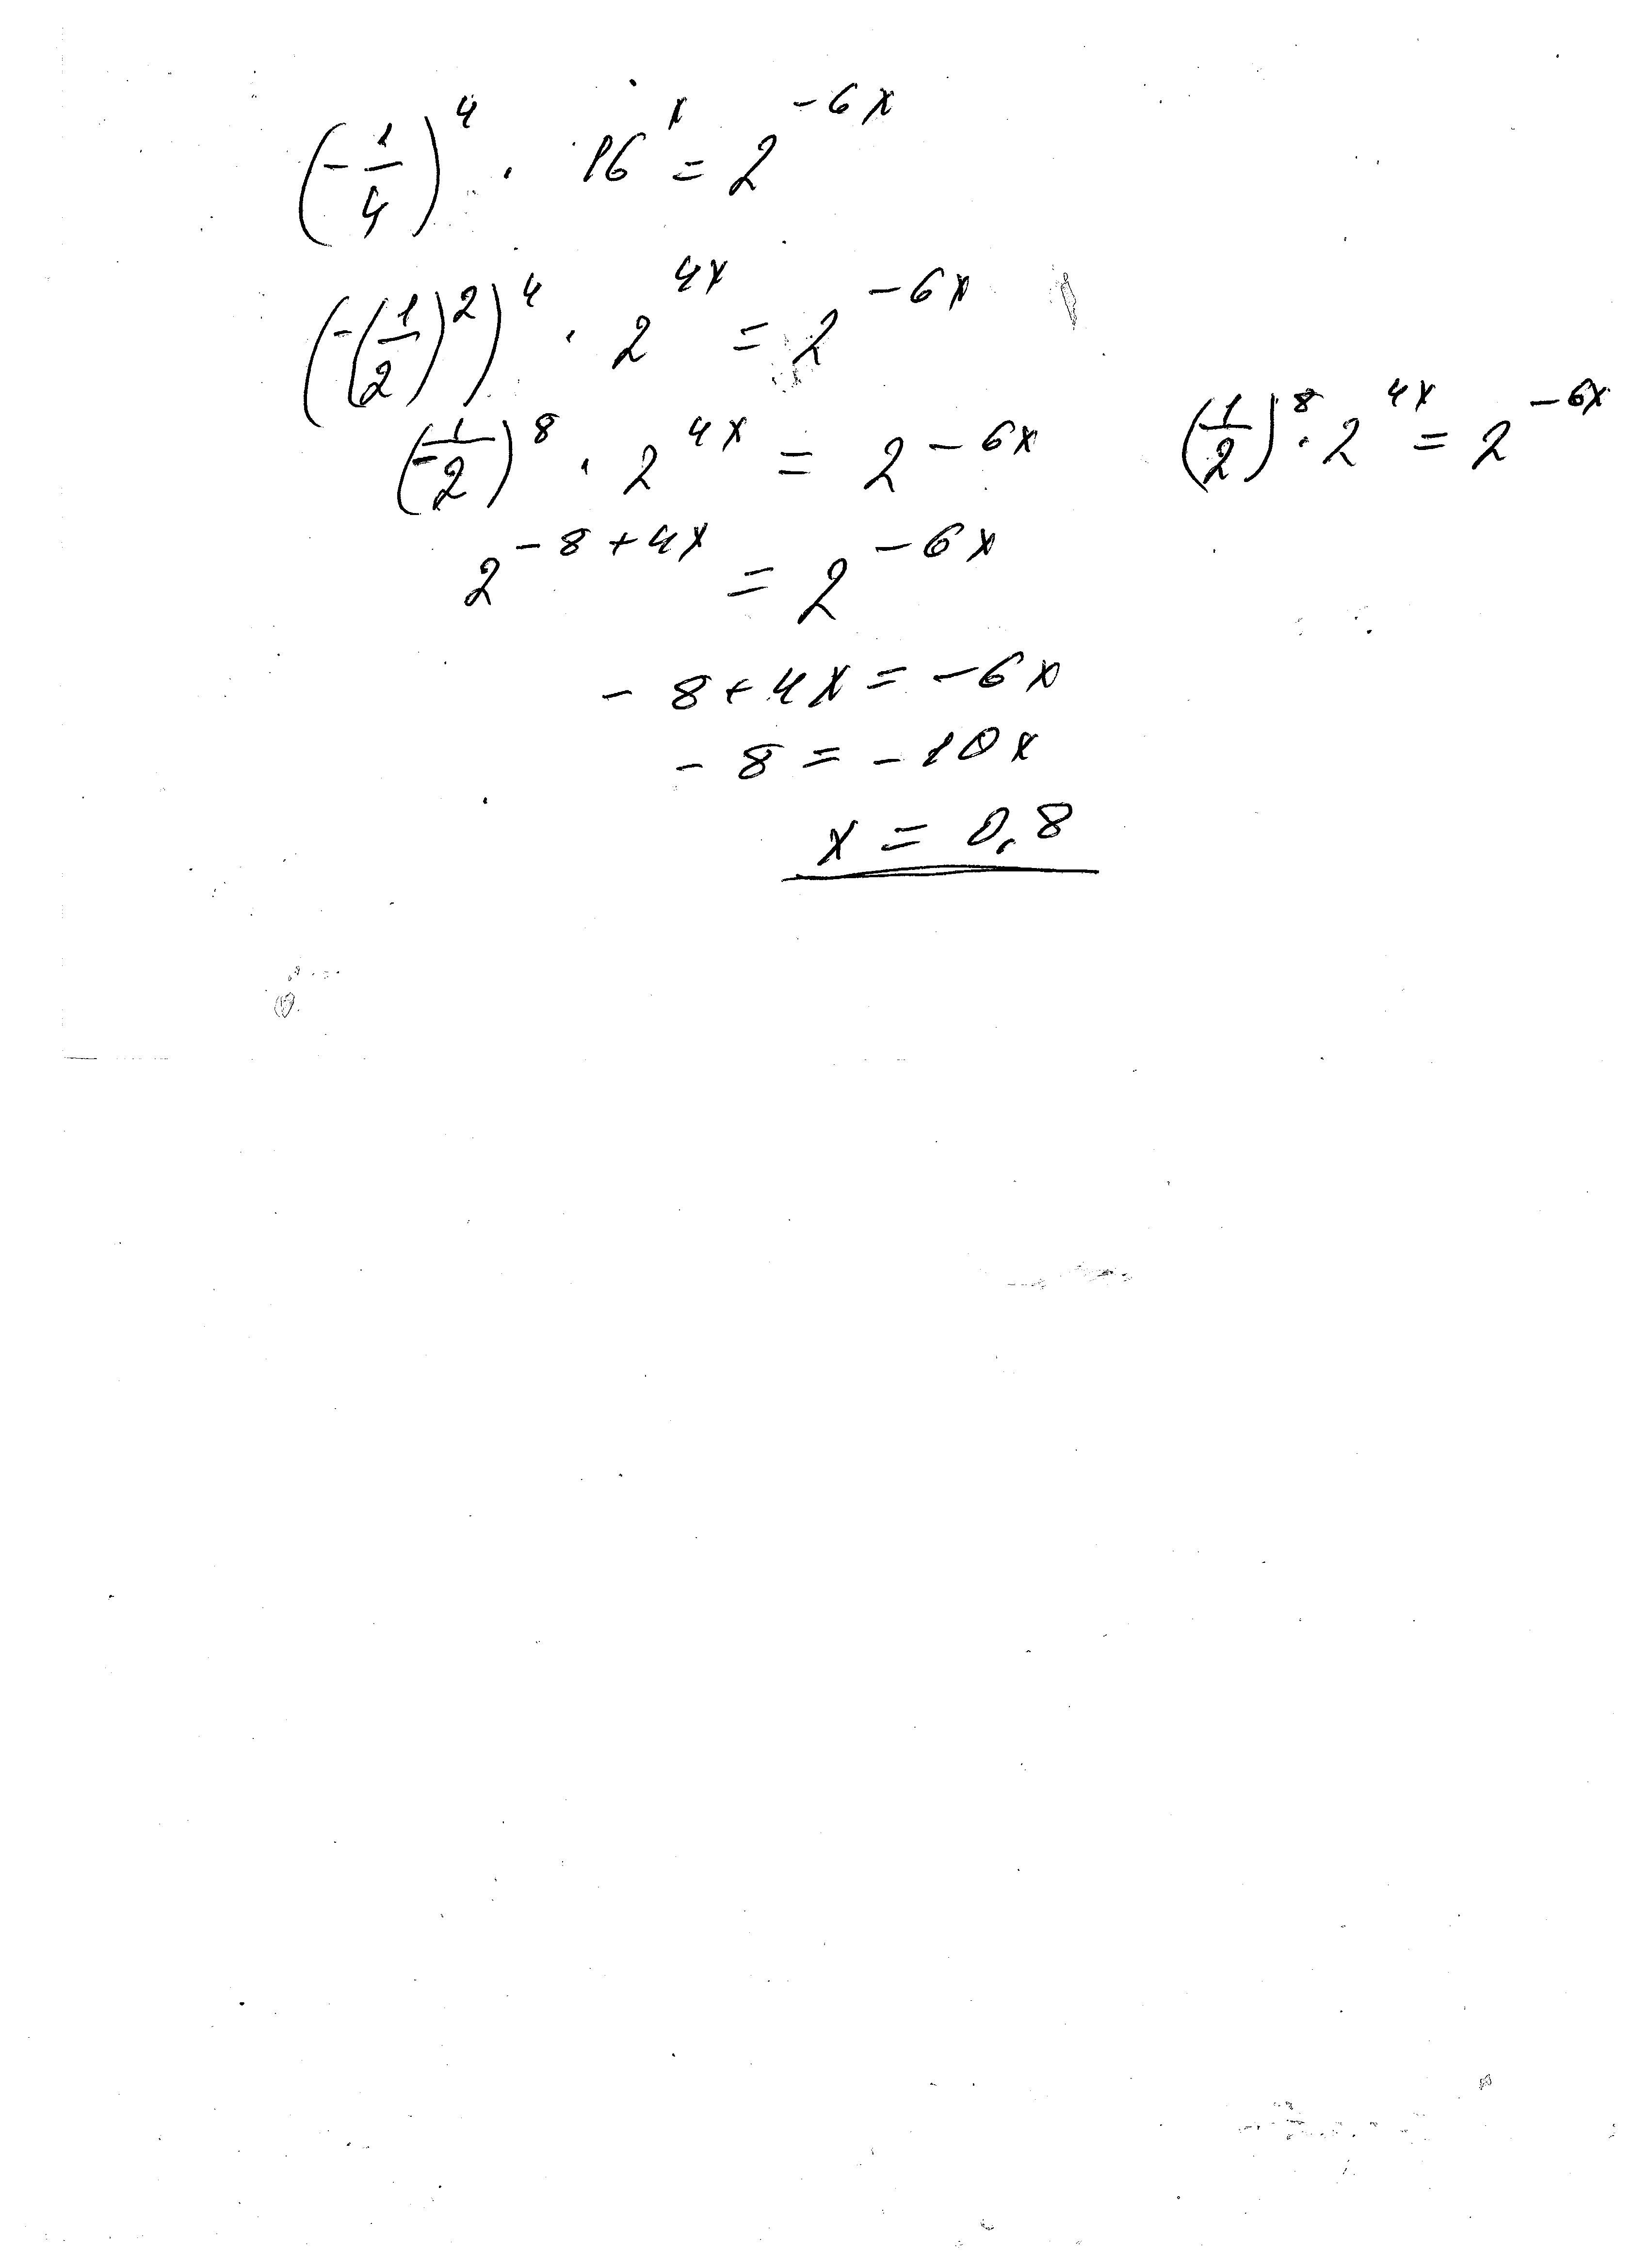 (-1/4)^4 · 16^x = 2^(-6x)
(-(1/2)^2)^4 · 2^(4x) = 2^(-6x)
(-1/2)^8 · 2^(4x) = 2^(-6x)
(1/2)^8 · 2^(4x) = 2^(-6x)
2^(-8+4x) = 2^(-6x)
-8+4x = -6x
-8 = -10x
x = 0,8